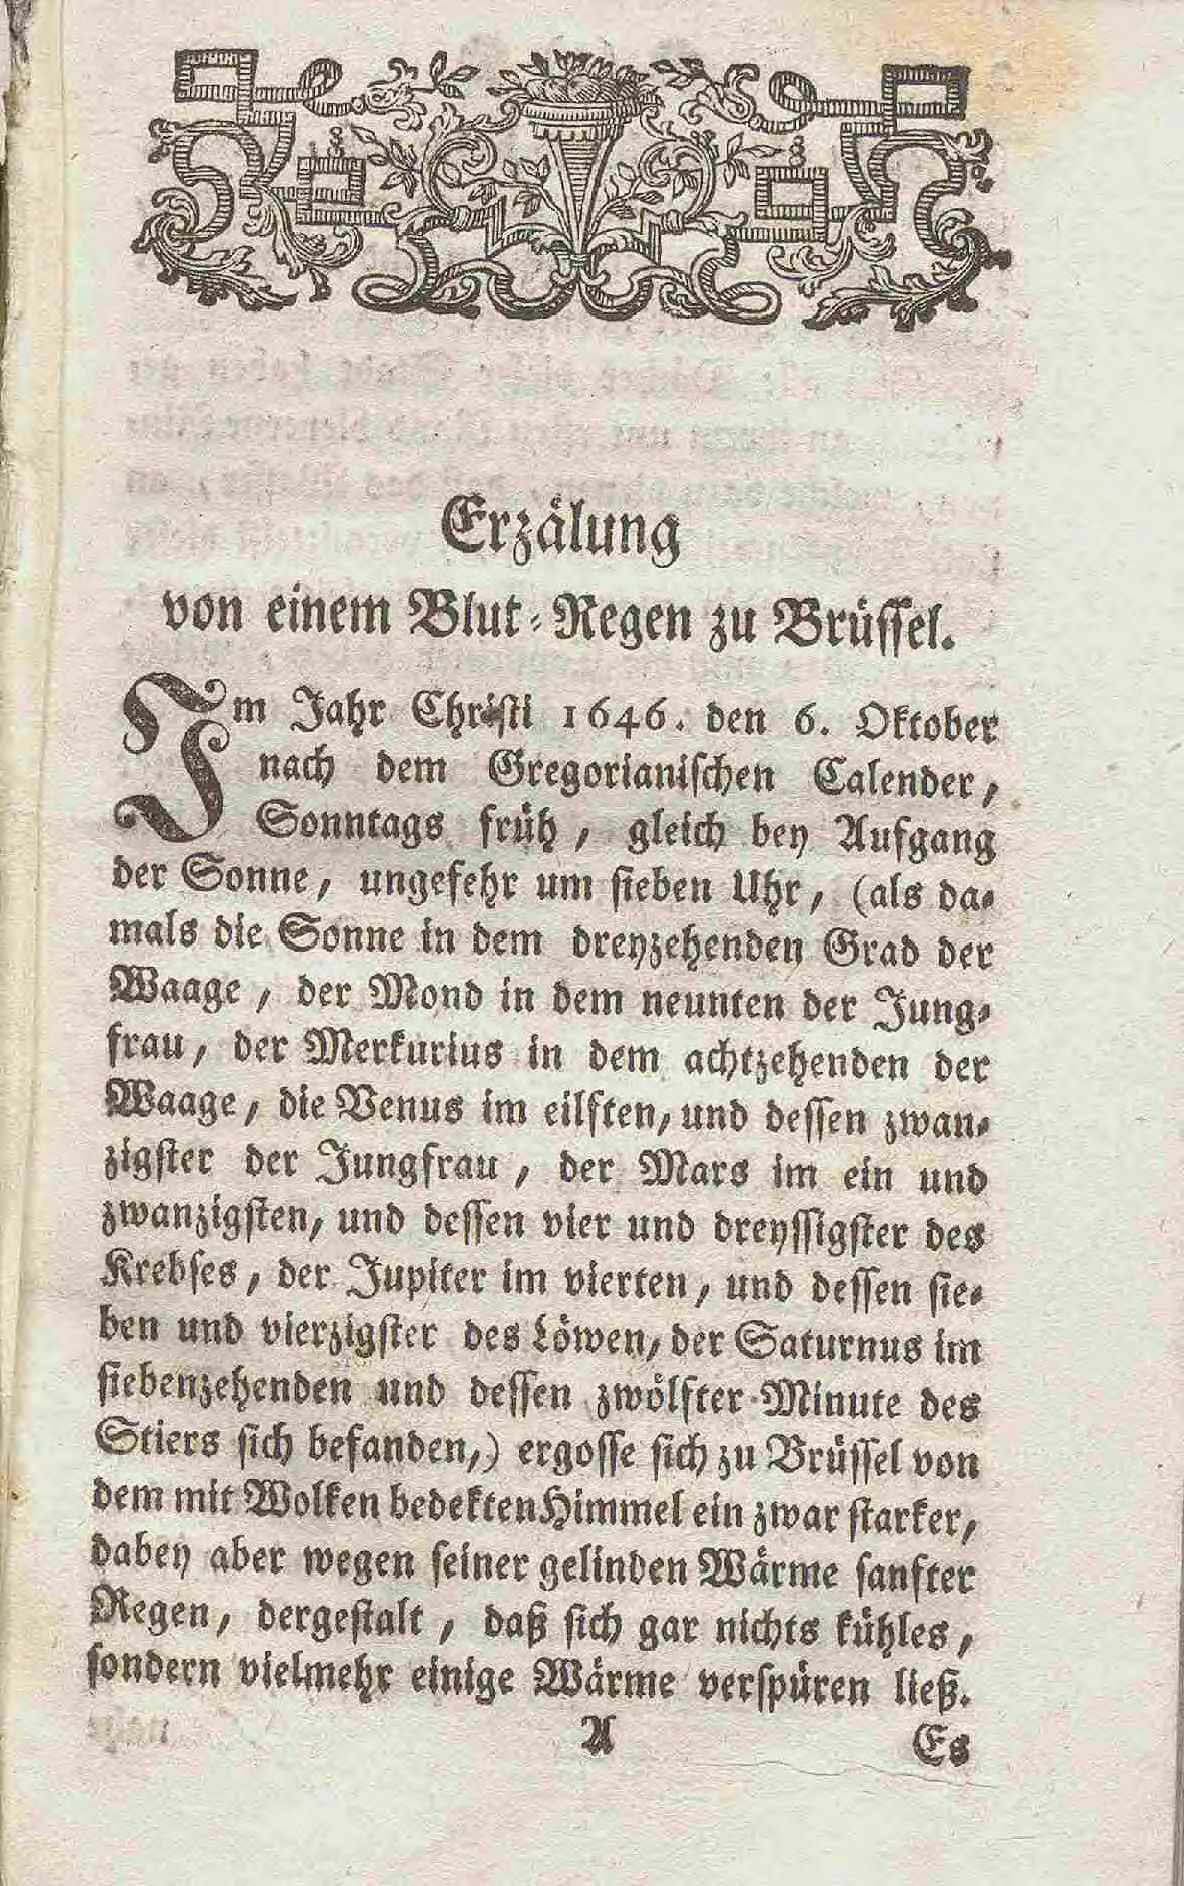 Erzälung
von einem Blut-Regen zu Brüssel.
Im Jahr Christi 1646. den 6. Oktober
nach dem Gregorianischen Calender,
Sonntags früh, gleich bey Aufgang
der Sonne, ungefehr um sieben Uhr, (als da-
mals die Sonne in dem dreyzehenden Grad der
Waage, der Mond in dem neunten der Jung-
frau, der Merkurius in dem achtzehenden der
Waage, die Venus im eilften, und dessen zwan-
zigster der Jungfrau, der Mars im ein und
zwanzigsten, und dessen vier und dreyssigster des
Krebses, der Jupiter im vierten, und dessen sie-
ben und vierzigster des Löwen, der Saturnus im
siebenzehenden und dessen zwölfter Minute des
Stiers sich befanden,) ergosse sich zu Brüssel von
dem mit Wolken bedekten Himmel ein zwar starker,
dabey aber wegen seiner gelinden Wärme sanfter
Regen, dergestalt, daß sich gar nichts kühles,
sondern vielmehr einige Wärme verspüren ließ.
A Es